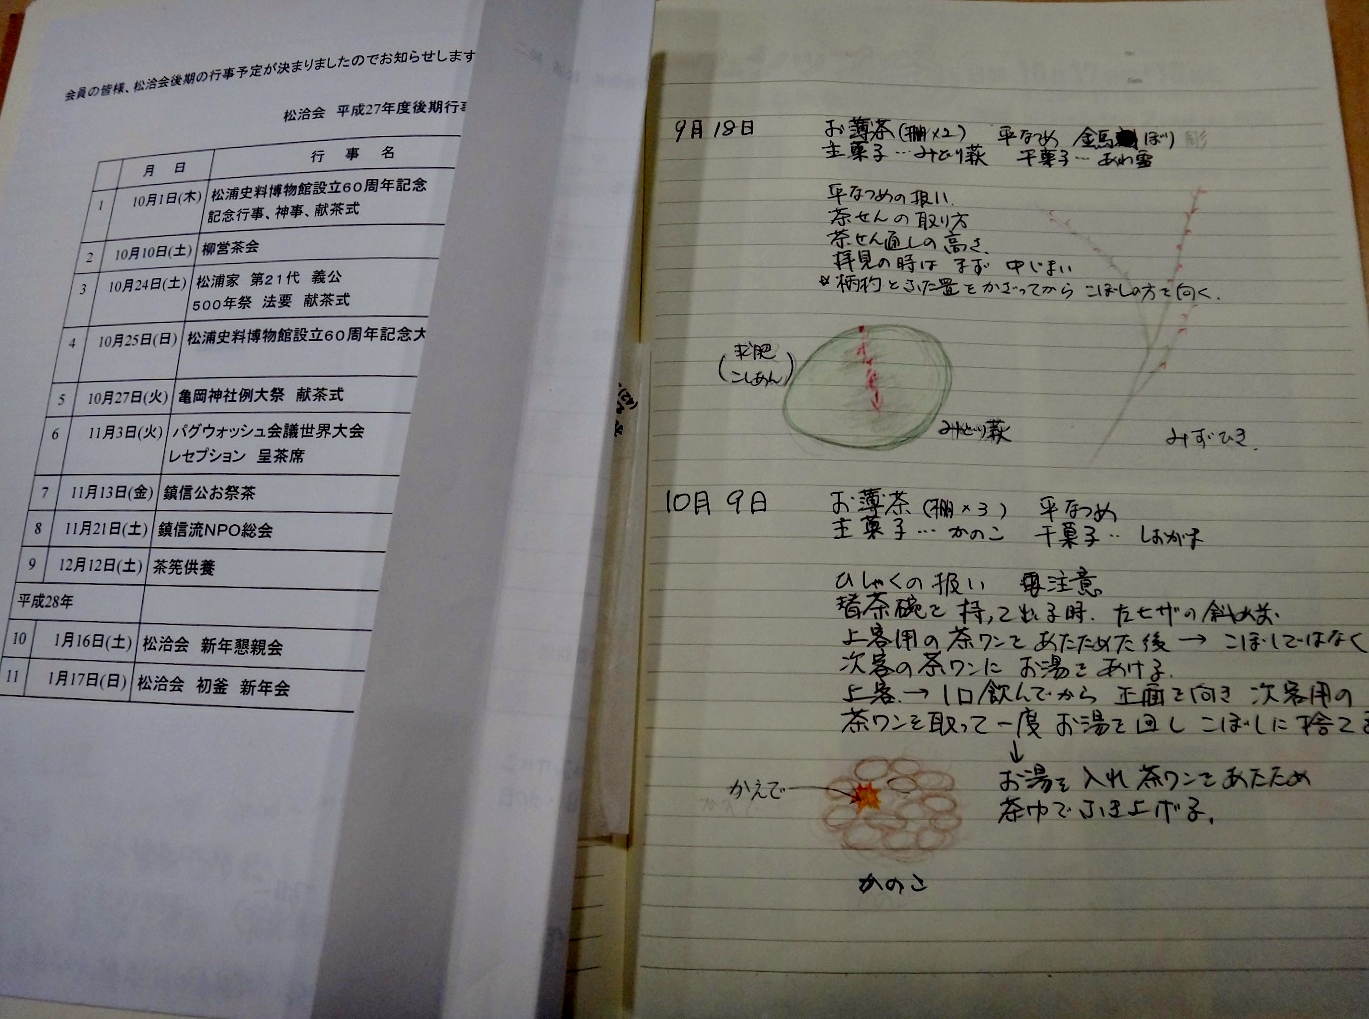 会員の皆様、松浛会後期の行事予定が決まりましたのでお知らせします
松浛会 平成27年度後期行事
月 日 行 事 名
1 10月1日(木) 松浦史料博物館設立60周年記念
記念行事、神事、献茶式
2 10月10日(土) 柳営茶会
3 10月24日(土) 松浦家 第21代 義公
500年祭 法要 献茶式
4 10月25日(日) 松浦史料博物館設立60周年記念大
5 10月27日(火) 亀岡神社例大祭 献茶式
6 11月3日(火) パグウォッシュ会議世界大会
レセプション 呈茶席
7 11月13日(金) 鎮信公お祭茶
8 11月21日(土) 鎮信流NPO総会
9 12月12日(土) 茶筅供養
平成28年
10 1月16日(土) 松浛会 新年懇親会
11 1月17日(日) 松浛会 初釜 新年会
9月18日 お薄茶(棚×2) 平なつめ 金馬 ぼり 彫
主菓子…みどり萩 干菓子…あわ雪
平なつめの扱い
茶せんの取り方
茶せん通しの高さ
拝見の時は まず 中じまい
*柄杓とふた置をかざってから こぼしの方を向く.
求肥
(こしあん)
みどり萩
みずひき
10月9日 お薄茶(棚×3) 平なつめ
主菓子…かのこ 干菓子… しおがま
ひしゃくの扱い 要注意
替茶碗を持って出る時. 左ヒザの斜め前.
上客用の茶ワンをあたためた後→こぼしではなく
次客の茶ワンに お湯をあける.
上客→1口飲んでから 正面を向き 次客用の
茶ワンを取って一度 お湯を回し こぼしに捨てる
↓
お湯を入れ茶ワンをあたため
茶巾でふき上げる.
かえで
かのこ